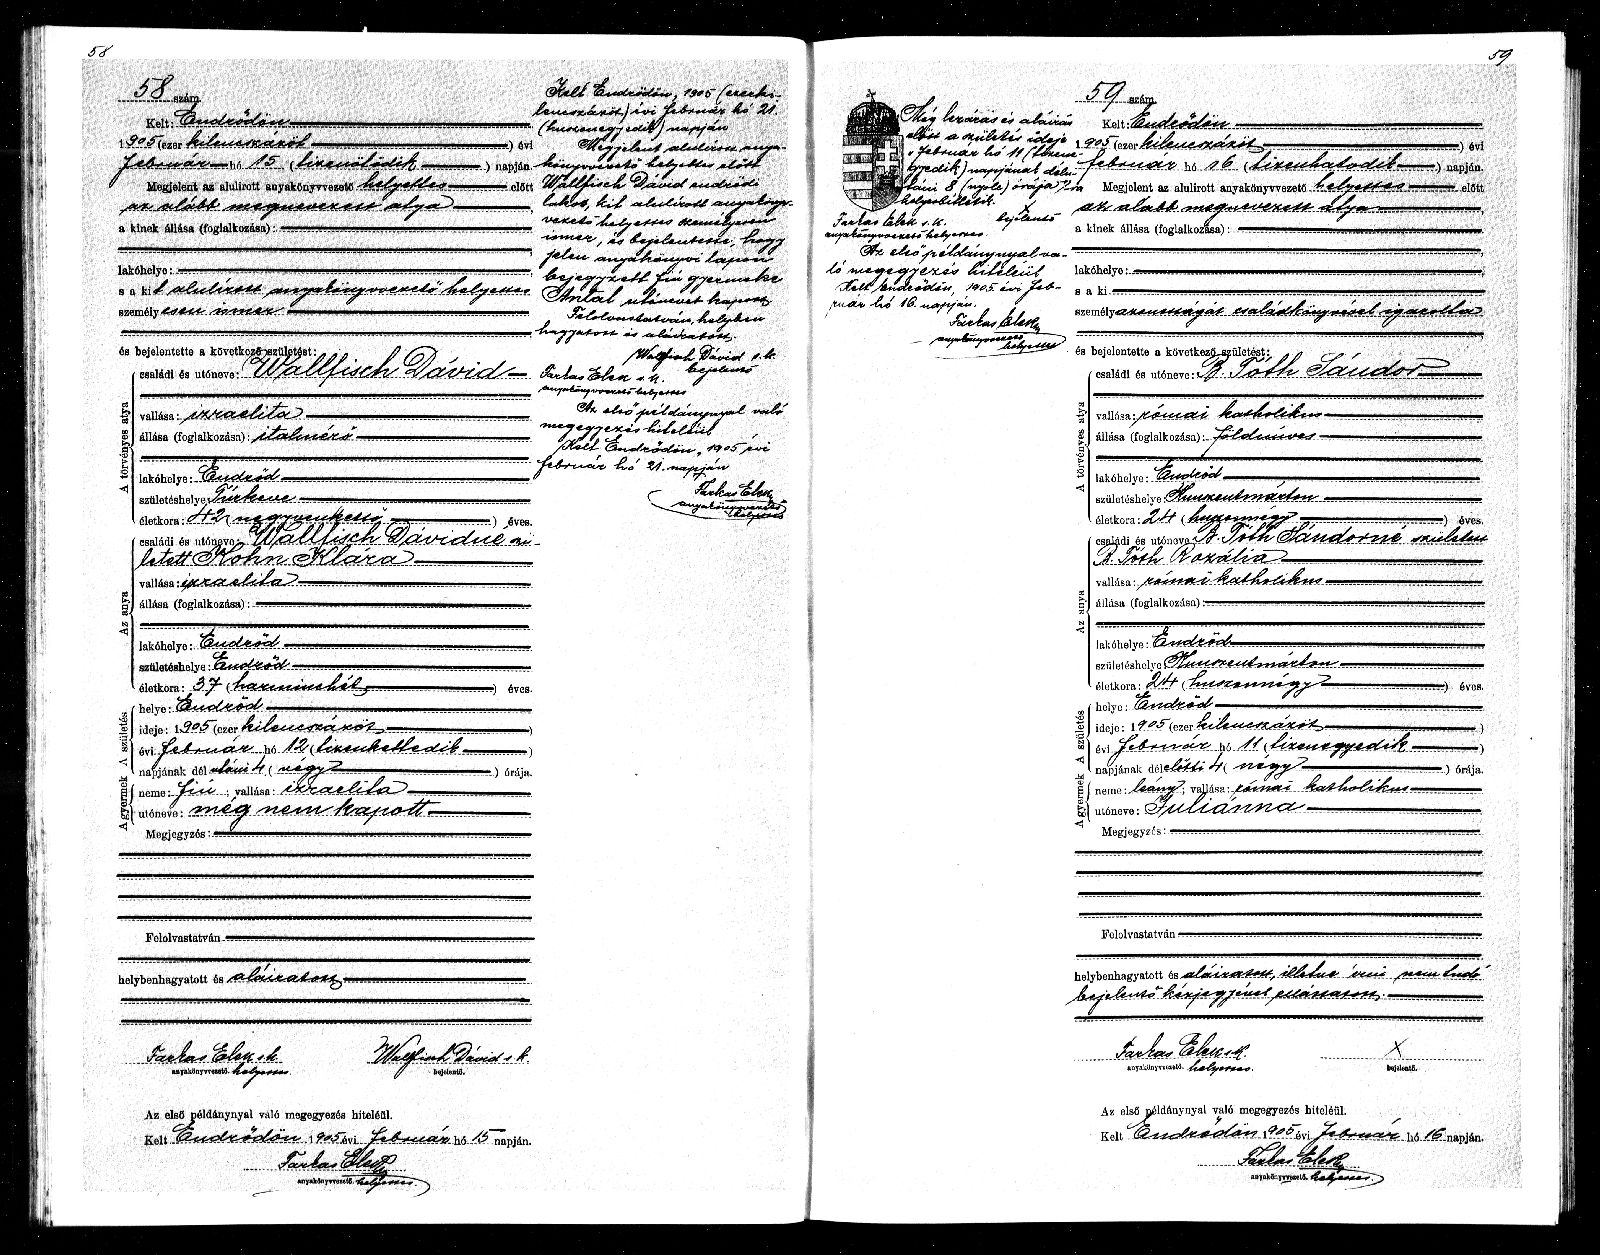 58
58 szám.
Kelt: Endrődön
1905 (ezer kilenczázöt) évi
február hó 15 (tizenötödik) napján.
Megjelent az alulirott anyakönyvvezető helyettes előtt
az alább megnevezett atya
a kinek állása (foglalkozása):
lakóhelye:
s a kit alulirott anyakönyvvezető helyettes
személyesen ismer
és bejelentette a következő születést:
A törvényes atya
családi és utóneve: Wallfisch Dávid
vallása: izraelita
állása (foglalkozása): italmérő
lakóhelye: Endrőd
születéshelye: Túrkeve
életkora: 42 (negyvenkettő) éves.
Az anya
családi és utóneve: Wallfisch Dávidné szü-
letett Kohn Klára
vallása: izraelita
állása (foglalkozása):
lakóhelye: Endrőd
születéshelye: Endrőd
életkora: 37 (harminchét) éves.
A születés
helye: Endrőd
ideje: 1905 (ezer kilenczázöt)
évi február hó 12 (tizenkettedik)
napjának dél utáni 4 (négy) órája.
A gyermek
neme: fiú; vallása: izraelita
utóneve: még nem kapott
Megjegyzés:
Felolvastatván
helybenhagyatott és aláiratott
Farkas Elek sk. Wallfisch Dávid s.k.
anyakönyvvezető. helyettes. bejelentő.
Az első példánynyal való megegyezés hiteléül.
Kelt Endrődön 1905 évi február hó 15 napján.
Farkas Elek
anyakönyvvezető. helyettes.
Kelt Endrődön, 1905 (ezerki-
lenczázöt) évi február hó 21.
(huszonegyedik) napján
Megjelent alulirott anya-
könyvvezető helyettes előtt
Wallfisch Dávid endrődi
lakos, kit alulirott anyakönyv-
vezető helyettes személyesen
ismer, és bejelentette, hogy
jelen anyakönyvi lapon
bejegyzett fiu gyermeke
Antal utónevet kapott
Felolvastatván, helyben
hagyatott és aláiratott.
Wallfisch Dávid s.k.
bejelentő
Farkas Elek s.k.
anyakönyvvezető helyettes
Az első példánynyal való
megegyezés hiteléül
Kelt Endrődön, 1905 évi
február hó 21. napján
Farkas Elek
anyakönyvvezető
helyettes
59
Még lezárás és aláirás
előtt a születés ideje
„február hó 11 (tizene-
gyedik) napjának délu-
táni 8 (nyolc) órája"-ra
helyesbittetik.
X
bejelentő
Farkas Elek s.k.
anyakönyvvezető helyettes.
Az első példánynyal va-
ló megegyezés hiteléül
Kelt Endrődön, 1905 évi feb-
ruár hó 16. napján.
Farkas Elek
anyakönyvvezető
helyettes
59 szám.
Kelt: Endrődön
1905 (ezer kilenczázöt) évi
február hó 16 (tizenhatodik) napján.
Megjelent az alulirott anyakönyvvezető helyettes előtt
az alább megnevezett atya
a kinek állása (foglalkozása):
lakóhelye:
s a ki
személyazonosságát családkönyvével igazolta
és bejelentette a következő születést:
A törvényes atya
családi és utóneve: B. Tóth Sándor
vallása: római katholikus
állása (foglalkozása): földmives
lakóhelye: Endrőd
születéshelye: Kunszentmárton
életkora: 24 (huszonnégy) éves.
Az anya
családi és utóneve: B. Tóth Sándorné született
B. Tóth Rozália
vallása: római katholikus
állása (foglalkozása):
lakóhelye: Endrőd
születéshelye: Kunszentmárton
életkora: 24 (huszonnégy) éves.
A születés
helye: Endrőd
ideje: 1905 (ezer kilenczázöt)
évi február hó 11 (tizenegyedik)
napjának dél előtti 4 (négy) órája.
A gyermek
neme: leány; vallása: római katholikus
utóneve: Juliánna
Megjegyzés:
Felolvastatván
helybenhagyatott és aláiratott, illetve irni nem tudó
bejelentő kézjegyével ellátatott.
Farkas Elek sk. X
anyakönyvvezető. helyettes. bejelentő.
Az első példánynyal való megegyezés hiteléül.
Kelt Endrődön 1905 évi február hó 16 napján.
Farkas Elek
anyakönyvvezető. helyettes.